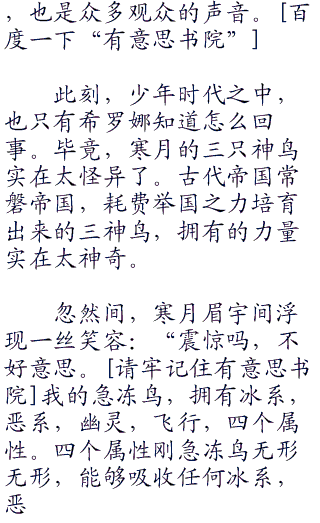 ，也是众多观众的声音。[百
度一下“有意思书院”]
此刻，少年时代之中，
也只有希罗娜知道怎么回
事。毕竟，寒月的三只神鸟
实在太怪异了。古代帝国常
磐帝国，耗费举国之力培育
出来的三神鸟，拥有的力量
实在太神奇。
忽然间，寒月眉宇间浮
现一丝笑容：“震惊吗，不
好意思。[请牢记住有意思书
院]我的急冻鸟，拥有冰系，
恶系，幽灵，飞行，四个属
性。四个属性刚急冻鸟无形
无形，能够吸收任何冰系，
恶